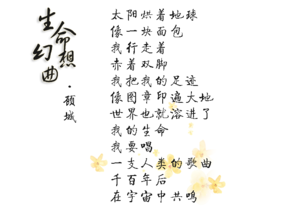 生命幻想曲
·顾城
太阳烘着地球
像一块面包
我行走着
赤着双脚
我把我的足迹
像图章印遍大地
世界也就溶进了
我的生命
我要唱
一支人类的歌曲
千百年后
在宇宙中共鸣